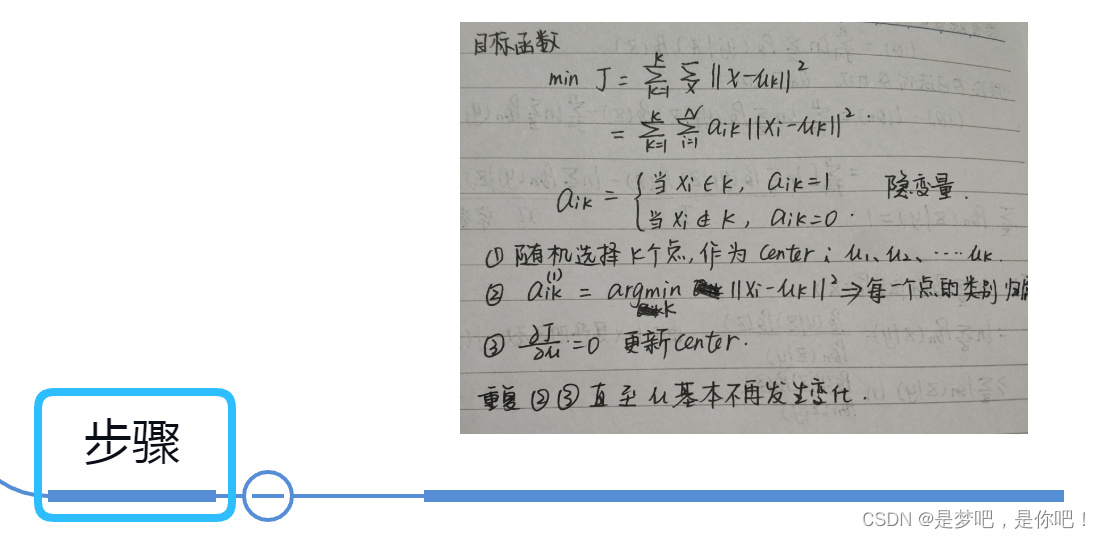 目标函数
min J = ∑_{k=1}^{K} ∑_{x} ||x-μk||²
= ∑_{k=1}^{K} ∑_{i=1}^{N} aik ||xi-μk||².
aik = { 当 xi ∈ k, aik=1 隐变量.
当 xi ∉ k, aik=0.
① 随机选择 k个点,作为 center: μ1、μ2、……μk.
② aik^{(1)} = argmin_{k} ||xi-μk||² ⇒ 每一个点的类别归
③ ∂J/∂μ = 0 更新center.
重复②③直至μ基本不再发生变化.
步骤
CSDN @是梦吧，是你吧！